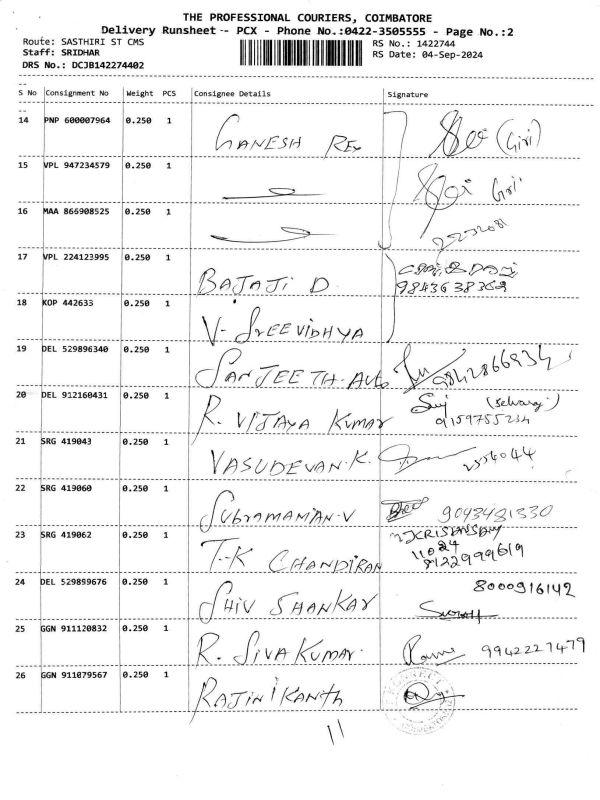 THE PROFESSIONAL COURIERS, COIMBATORE
Delivery Runsheet -- PCX - Phone No.:0422-3505555 - Page No.:2
Route: SASTHIRI ST CMS
RS No.: 1422744
Staff: SRIDHAR
RS Date: 04-Sep-2024
DRS No.: DCJB142274402
S No Consignment No Weight PCS Consignee Details Signature
14 PNP 600007964 0.250 1 GANESH Rex (Giri)
15 VPL 947234579 0.250 1 Giri
16 MAA 866908525 0.250 1 2232081
17 VPL 224123995 0.250 1 BAJAJI D
9843638362
18 KOP 442633 0.250 1 V- SREEVIDHYA
19 DEL 529896340 0.250 1 SANJEETH. Auto 9842866934
20 DEL 912160431 0.250 1 R. VIJAYA KUMAR (Selvaraj)
9159755234
21 SRG 419043 0.250 1 VASUDEVAN.K. 2354044
22 SRG 419060 0.250 1 SUBRAMANIAN.V 9043481330
23 SRG 419062 0.250 1 T.K CHANDIRAN
11024
8122999619
24 DEL 529899676 0.250 1 SHIV SHANKAR 8000916142
25 GGN 911120832 0.250 1 R. SIVA KUMAR. 9942227479
26 GGN 911079567 0.250 1 RAJINIKANTH
11